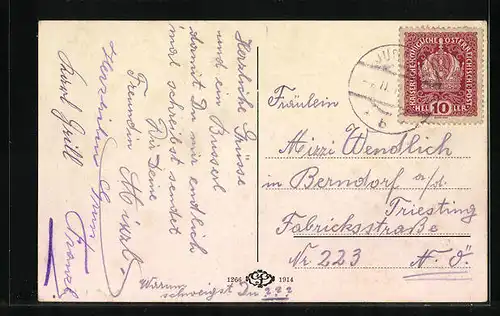 Herzliche Grüsse
und ein Busserl
damit Du mir endlich
mal schreibst sendet
Dir Deine
Freundin Mizzl.
Herzlichen Gruss
Karl Grill
Warum
schweigst Du ???
1266 1914
KAISERLICHKÖNIGLICHE ÖSTERREICHISCHE POST
HELLER
10
Fräulein
Mizzi Wendlich
in Berndorf a/d.
Triesting
Fabricksstraße
Nr 223 N.Ö.